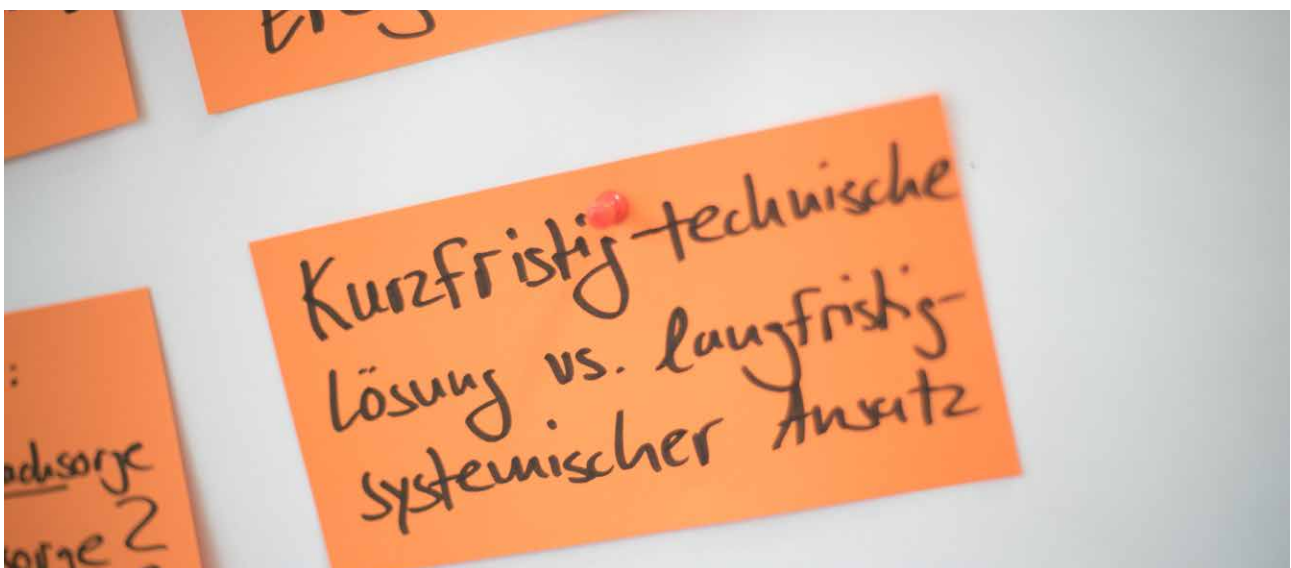 Kurzfristig-technische
lösung vs. langfristig-
systemischer Ansatz